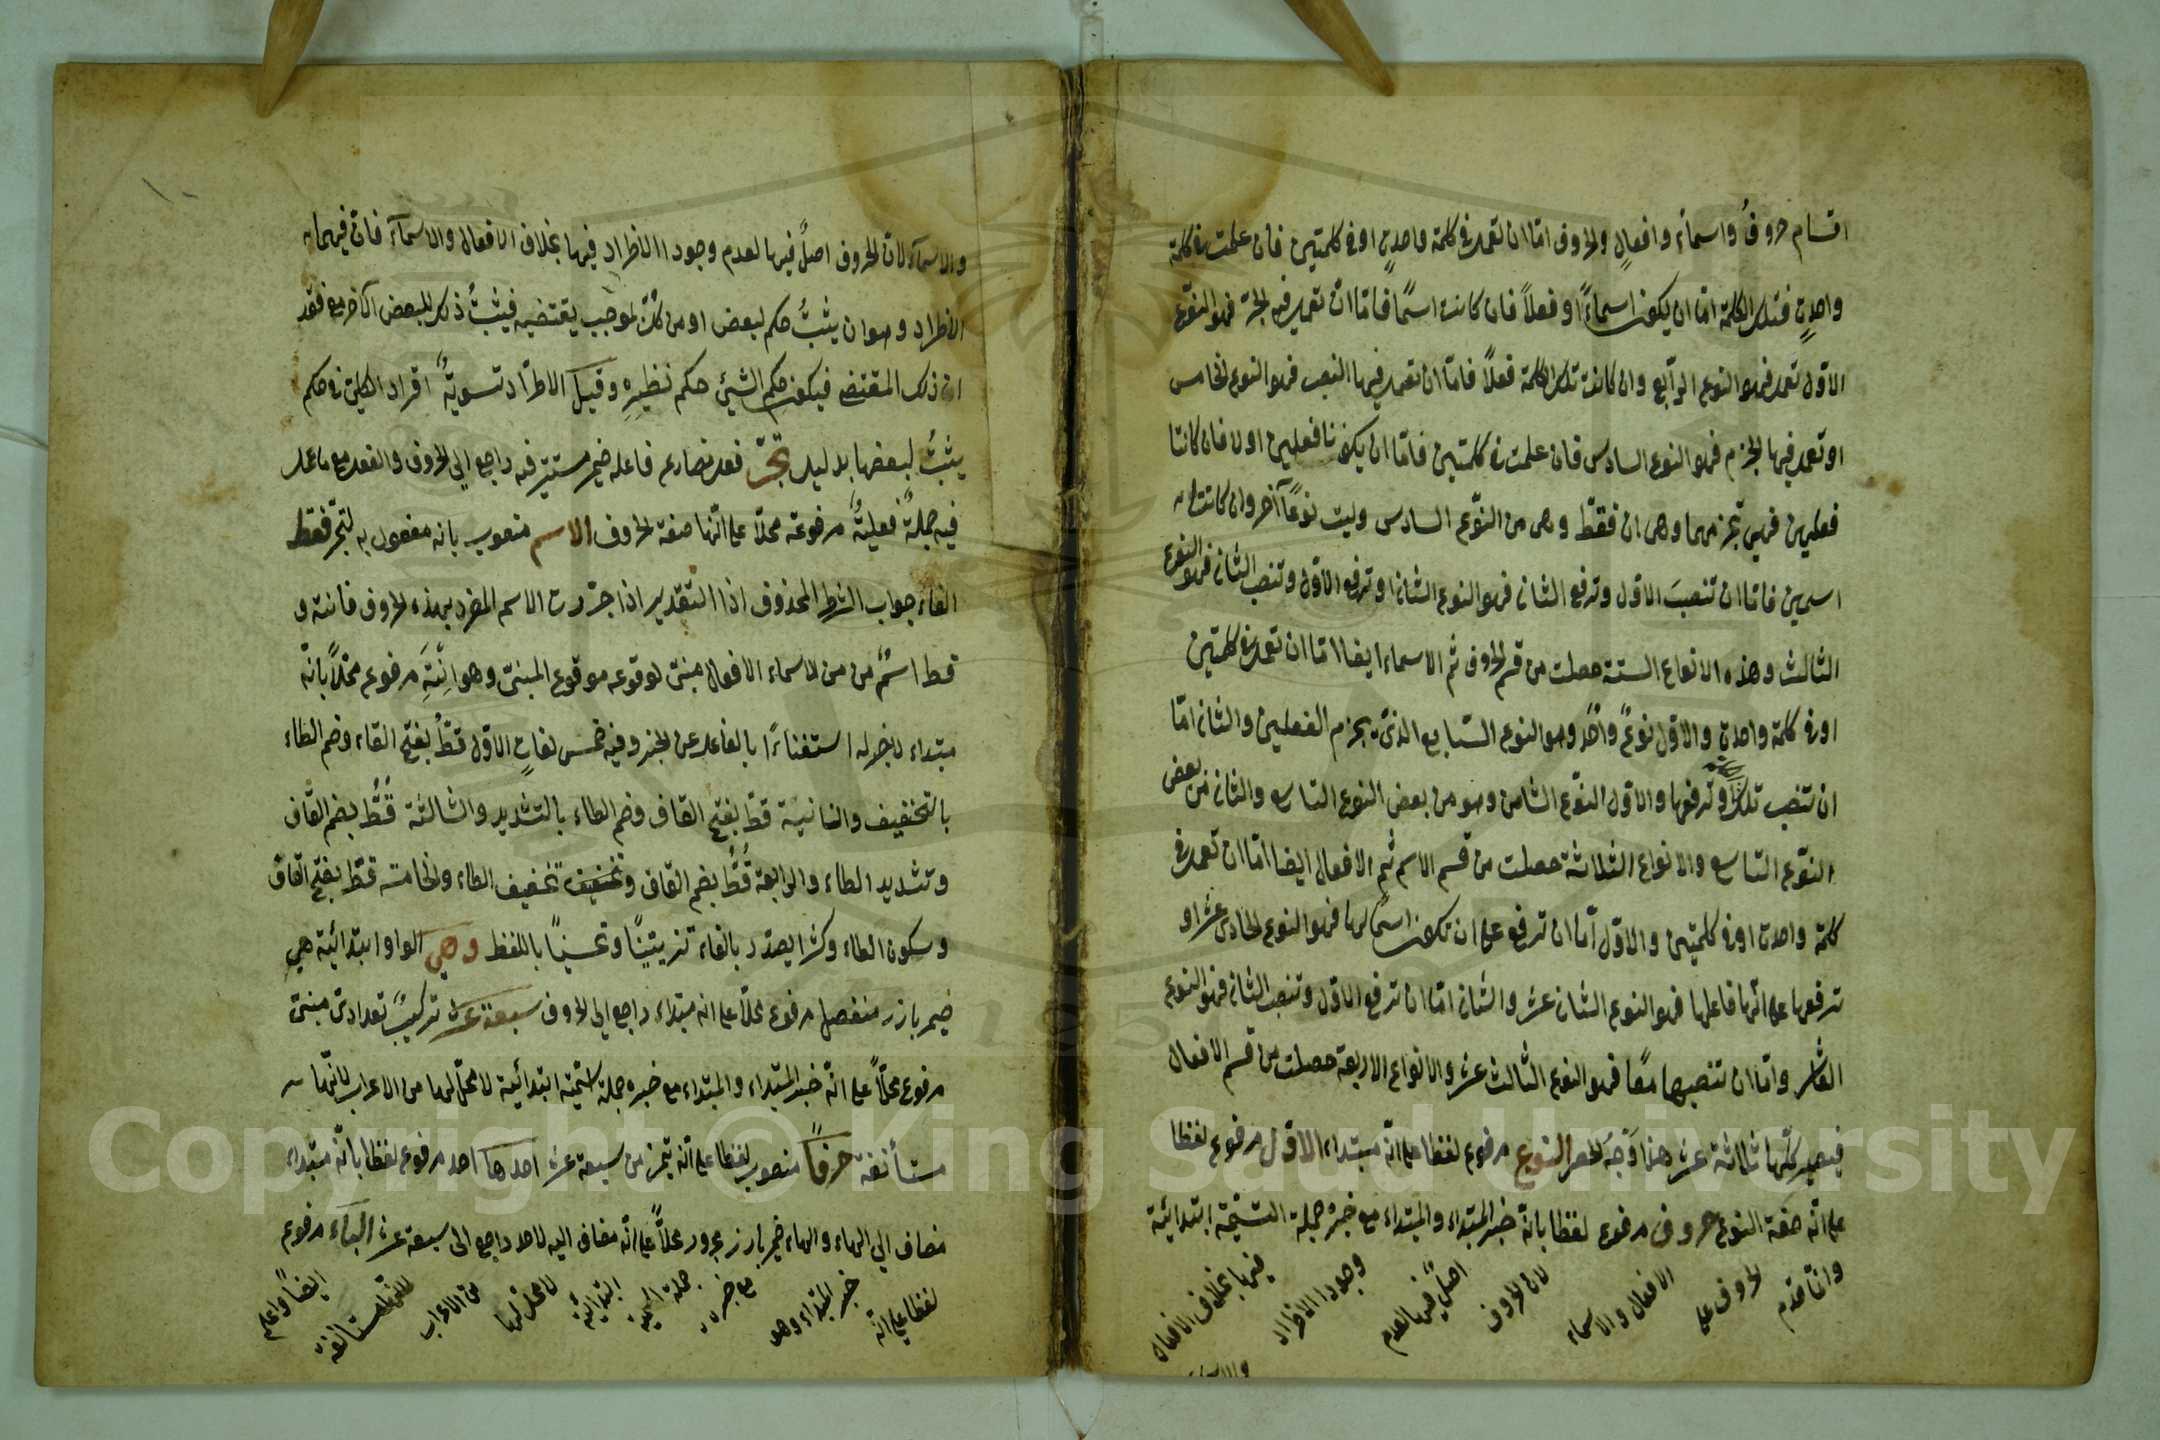 اقسام حروفٌ واسماءٌ وافعالٍ والحروف امّا ان تعمل فى كلمة واحدةٍ او فى كلمتين فان عملت فى كلمة
واحدةٍ فتلك الكلمة امّا ان يكون اسماءً او فعلاً فان كانت اسمًا فامّا انّ تعمل فيه الجرّ فهو النوّع
الاوّل تعمل فهو النوع الرّابع وان كانت تلك الكلمة فعلاً فامّا ان تعمل فيها النصب فهو النوع الخامس
او تعمل فيها الجزم فهو النوع السادس فان علمت فى كلمتين فامّا ان يكونا فعلين اولا فان كانتا
فعلين فهى تجزمهما وهى ان فقطّ وهى من النوّع السادس وليت نوعًا آخر وان كانت
اسمين فامّا ان تنصبَ الاوّل وترفع الثانى فهو النوع الثانى او ترفع الاوّل وتنصب الثانى فهو النوع
الثالث وهذه الانواع الستة حصلت من قسم الحروف ثم الاسماء ايضا امّا ان تعمل فى كلمتين
او فى كلمة واحدةٍ والاوّل نوعٌ واحدٌ وهو النوع السّابع الذىّ يجزم الفعلين والثانى امّا
ان تنصب تلك وترفعها والاوّل النوّع الثامن وهو من بعض النوع التاسع والثانى من بعض
النوّع التاسع والانواع الثلاثة حصلت من قسم الاسم ثم الافعال ايضا امّا ان تعمل فى
كلمة واحدة او فى كلمتين والاوّل امّا ان ترفع على ان تكون اسمًا لها فهو النوع الحادى عشر او
ترفعها على انّها فاعلها فهو النوع الثانى عشر والثانى امّا ان ترفع الاوّل وتنصب الثانى فهو النوع
العاشر وامّا ان تنصبهما معًا فهو النوع الثالث عشر والانواع الاربعة حصلت من قسم الافعال
فيصير كلّها ثلاثة عشر هذا وَجهُ الحصر النوع مرفوع لفظا على انّه مبتداء الاوّل مرفوع لفظا
على انّه صفة النوع حروف مرفوع لفظا بانّه خبر المبتداء والمبتداء مع خبره جملة اسميّة ابتدائية
وانّما قدّم الحروف على الافعال والاسماء لان الحروف اصلٌ فيها لعدم وجود الاطراد فيها بخلاف الافعال
والاسماء
والاسماء لانّ الحروف اصلٌ فيها لعدم وجود الاطراد فيها بخلاف الافعال والاسماء فانّ فيهما
الاطراد وهو ان يثبتُّ حكم لبعض او من كلّ لموجب يقتضيه فيثبتُ ذلك للبعض الآخر مع فقد
ان ذلك المقتضى فيكون حكم الشيئ حكم نظيرِهِ وقيلَ الاطرّاد تسويةٌ افراد الكلىّ فى حكم
يثبتُ لبعضها بدليل تجّر فعل مضارع فاعله ضمير مستتر فيه راجع الى الحروف والفعل مع ما عمل
فيه جملةٌ فعليةٌ مرفوعة محلاّ على انّها صفة الحروف الاسم منصوب بانه مفعول به لتجّر فقط
الفاء جواب الشرط المحذوف اذا التقدير اذا جرّرت الاسم المفرد بهذه الحروف فانته و
قط اسمٌ من من الاسماء الافعال مبنىّ لوقوعه موقوع المبنىّ وهو انِتَهِ مرفوع محلاً بانّه
مبتداء لا خبر له استغناءً بالفاعل عن الخبر وفيه خمس لغاتٍ الاوّل قطُ بفتح القاء وضم الطاء
بالتخفيف والثانية قطّ بفتح القاف وضم الطاء بالتشديد والثالثة قُطُّ بضم القاف
وتشديد الطاء والرابعة قُطُ بضم القاف وتخفيف تخفيف الطاء والخامسة قطْ بفتح القاف
وسكون الطاء وكثرا يصدّر بالفاء تزيينًا وتحسينًا باللفظ وهى الواو ابتدائية هى
ضمير بارز منفصل مرفوع محلاّ على انه مبتداء راجع الى الحروف سبعة عشر تركيبٌ تعدادىّ مبنىّ
مرفوع محلاً على انّه خبر المبتداء والمبتداء مع خبره جملة اسميّة ابتدائية لا محلّ لها من الاعراب لانّها
مستأنفة حرفاً منصوب لفظا على انّه تميز من سبعة عشر احدها احد مرفوع لفظا بانّه مبتداء
مضاف الى الهاء والهاء ضمير بارز مجرور محلاً على انّه مضاف اليه لاحد راجع الى سبعة عشر الباء مرفوع
لفظا على انّه خبر المبتداء وهو مع خبره جملة اسمية ابتدائية لا محل لها من الاعراب لانّها مستانفة ايضًا واعلم
Copyright © King Saud University